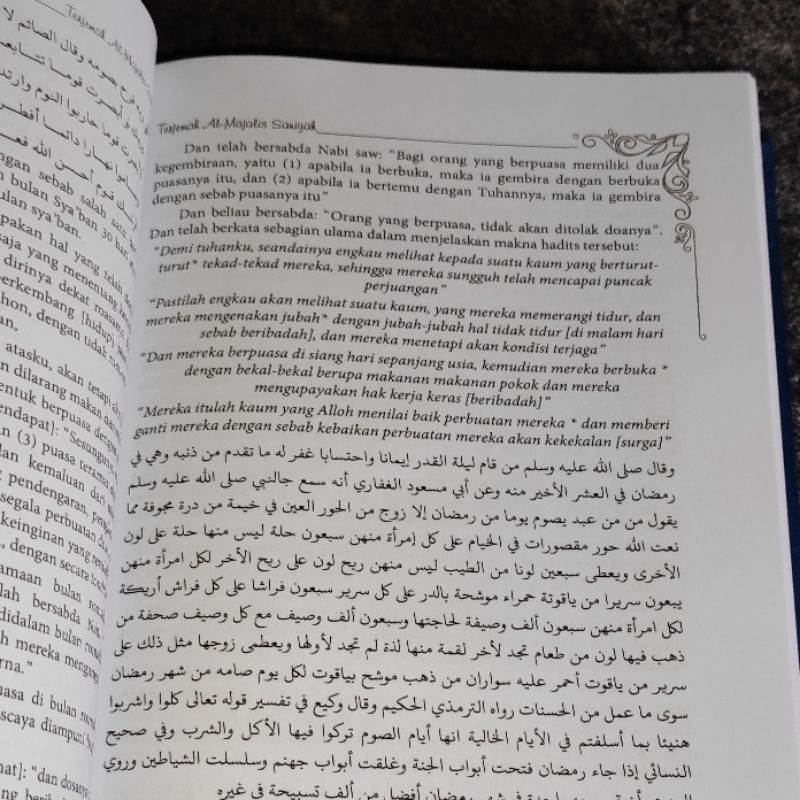 Terjemah Al-Majalis
بصومه وقال الصائم لا
أبصرت قوما تتابعت
قوما حاربوا النوم وارتد
وصاموا نهارا دائما أفطر
قوم أحسن الله فعـ
sebab salah satu
bulan Sya'ban 30 hari
ulan sya'ban.
pakan hal yang telah
saja yang menentang
dirinya dekat
berkembang [hidup],
hon, dengan tidak
atasku, akan tetapi
n dilarang makan dan
entuk berpuasa dengan
endapat]: "Sesungguh
n (3) puasa
lan kemaluan dari
g pendengaran,
segala perbuatan
keinginan yang
, dengan secara
amaan bulan
lah bersabda Nabi
didalam bulan
h mereka
rna."
asa di bulan
scaya diampuni
hat]: "dan dosanya
Terjemah Al-Majalis Saniyah
Dan telah bersabda Nabi saw: "Bagi orang yang berpuasa memiliki dua
kegembiraan, yaitu (1) apabila ia berbuka, maka ia gembira dengan berbuka
puasanya itu, dan (2) apabila ia bertemu dengan Tuhannya, maka ia gembira
dengan sebab puasanya itu"
Dan beliau bersabda: "Orang yang berpuasa, tidak akan ditolak doanya".
Dan telah berkata sebagian ulama dalam menjelaskan makna hadits tersebut:
"Demi tuhanku, seandainya engkau melihat kepada suatu kaum yang berturut-
turut* tekad-tekad mereka, sehingga mereka sungguh telah mencapai puncak
perjuangan"
"Pastilah engkau akan melihat suatu kaum, yang mereka memerangi tidur, dan
mereka mengenakan jubah* dengan jubah-jubah hal tidak tidur [di malam hari
sebab beribadah], dan mereka menetapi akan kondisi terjaga"
"Dan mereka berpuasa di siang hari sepanjang usia, kemudian mereka berbuka *
dengan bekal-bekal berupa makanan makanan pokok dan mereka
mengupayakan hak kerja keras [beribadah]"
"Mereka itulah kaum yang Alloh menilai baik perbuatan mereka * dan memberi
ganti mereka dengan sebab kebaikan perbuatan mereka akan kekekalan [surga]"
وقال صلى الله عليه وسلم من قام ليلة القدر إيمانا واحتسابا غفر له ما تقدم من ذنبه وهي في
رمضان في العشر الأخير منه وعن أبي مسعود الغفاري أنه سمع جالنبي صلى الله عليه وسلم
يقول من من عبد يصوم يوما من رمضان إلا زوج من الحور العين في خيمة من درة مجوفة مما
نعت الله حور مقصورات في الخيام على كل إمرأة منهن سبعون حلة ليس منها حلة على لون
الأخرى ويعطى سبعين لونا من الطيب ليس منهن ريح لون على ريح الأخر لكل امرأة منهن
سبعون سريرا من ياقوتة حمراء موشحة بالدر على كل سرير سبعون فراشا على كل فراش أريكة
لكل امرأة منهن سبعون ألف وصيفة لحاجتها وسبعون ألف وصيف مع كل وصيف صحفة من
ذهب فيها لون من طعام تجد لأخر لقمة منها لذة لم تجد لأولها ويعطى زوجها مثل ذلك على
سرير من ياقوت أحمر عليه سواران من ذهب موشح بياقوت لكل يوم صامه من شهر رمضان
سوى ما عمل من الحسنات رواه الترمذي الحكيم وقال وكيع في تفسير قوله تعالى كلوا واشربوا
هنيئا بما أسلفتم في الأيام الخالية انها أيام الصوم تركوا فيها الأكل والشرب وفي صحيح
النسائي إذا جاء رمضان فتحت أبواب الجنة وغلقت أبواب جهنم وسلسلت الشياطين وروي
في شهر رمضان أفضل من ألف تسبيحة في غيره